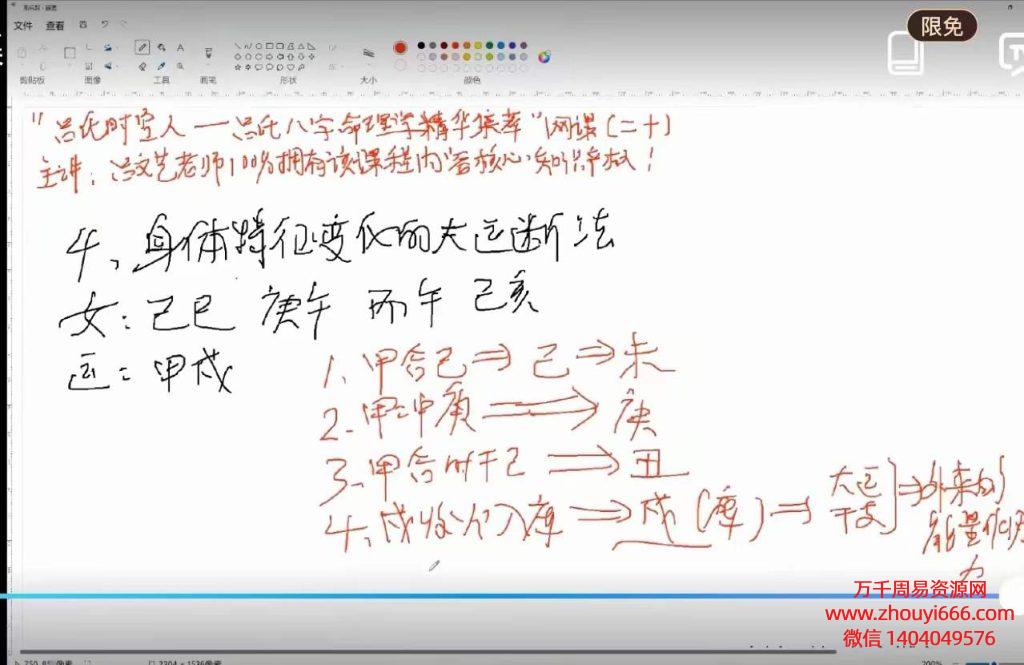 文件 查看
限免
剪贴板 图像 工具 画笔 形状 大小 颜色
"吕氏时空人一吕氏八字命理学精华集萃"网课(二十)
主讲:吕文艺老师100%拥有该课程内容核心知识产权!
4、身体特征变化的大运断法
女:己巳 庚午 丙午 己亥
运:甲戌
1、甲合己⇒己⇒未
2、甲冲庚⇒庚
3、甲合时干己⇒丑
4、戌收火入库⇒戌(库)⇒大运干支]⇒外来的能量
万千周易资源网
www.zhouyi666.com
微信 1404049576
200%